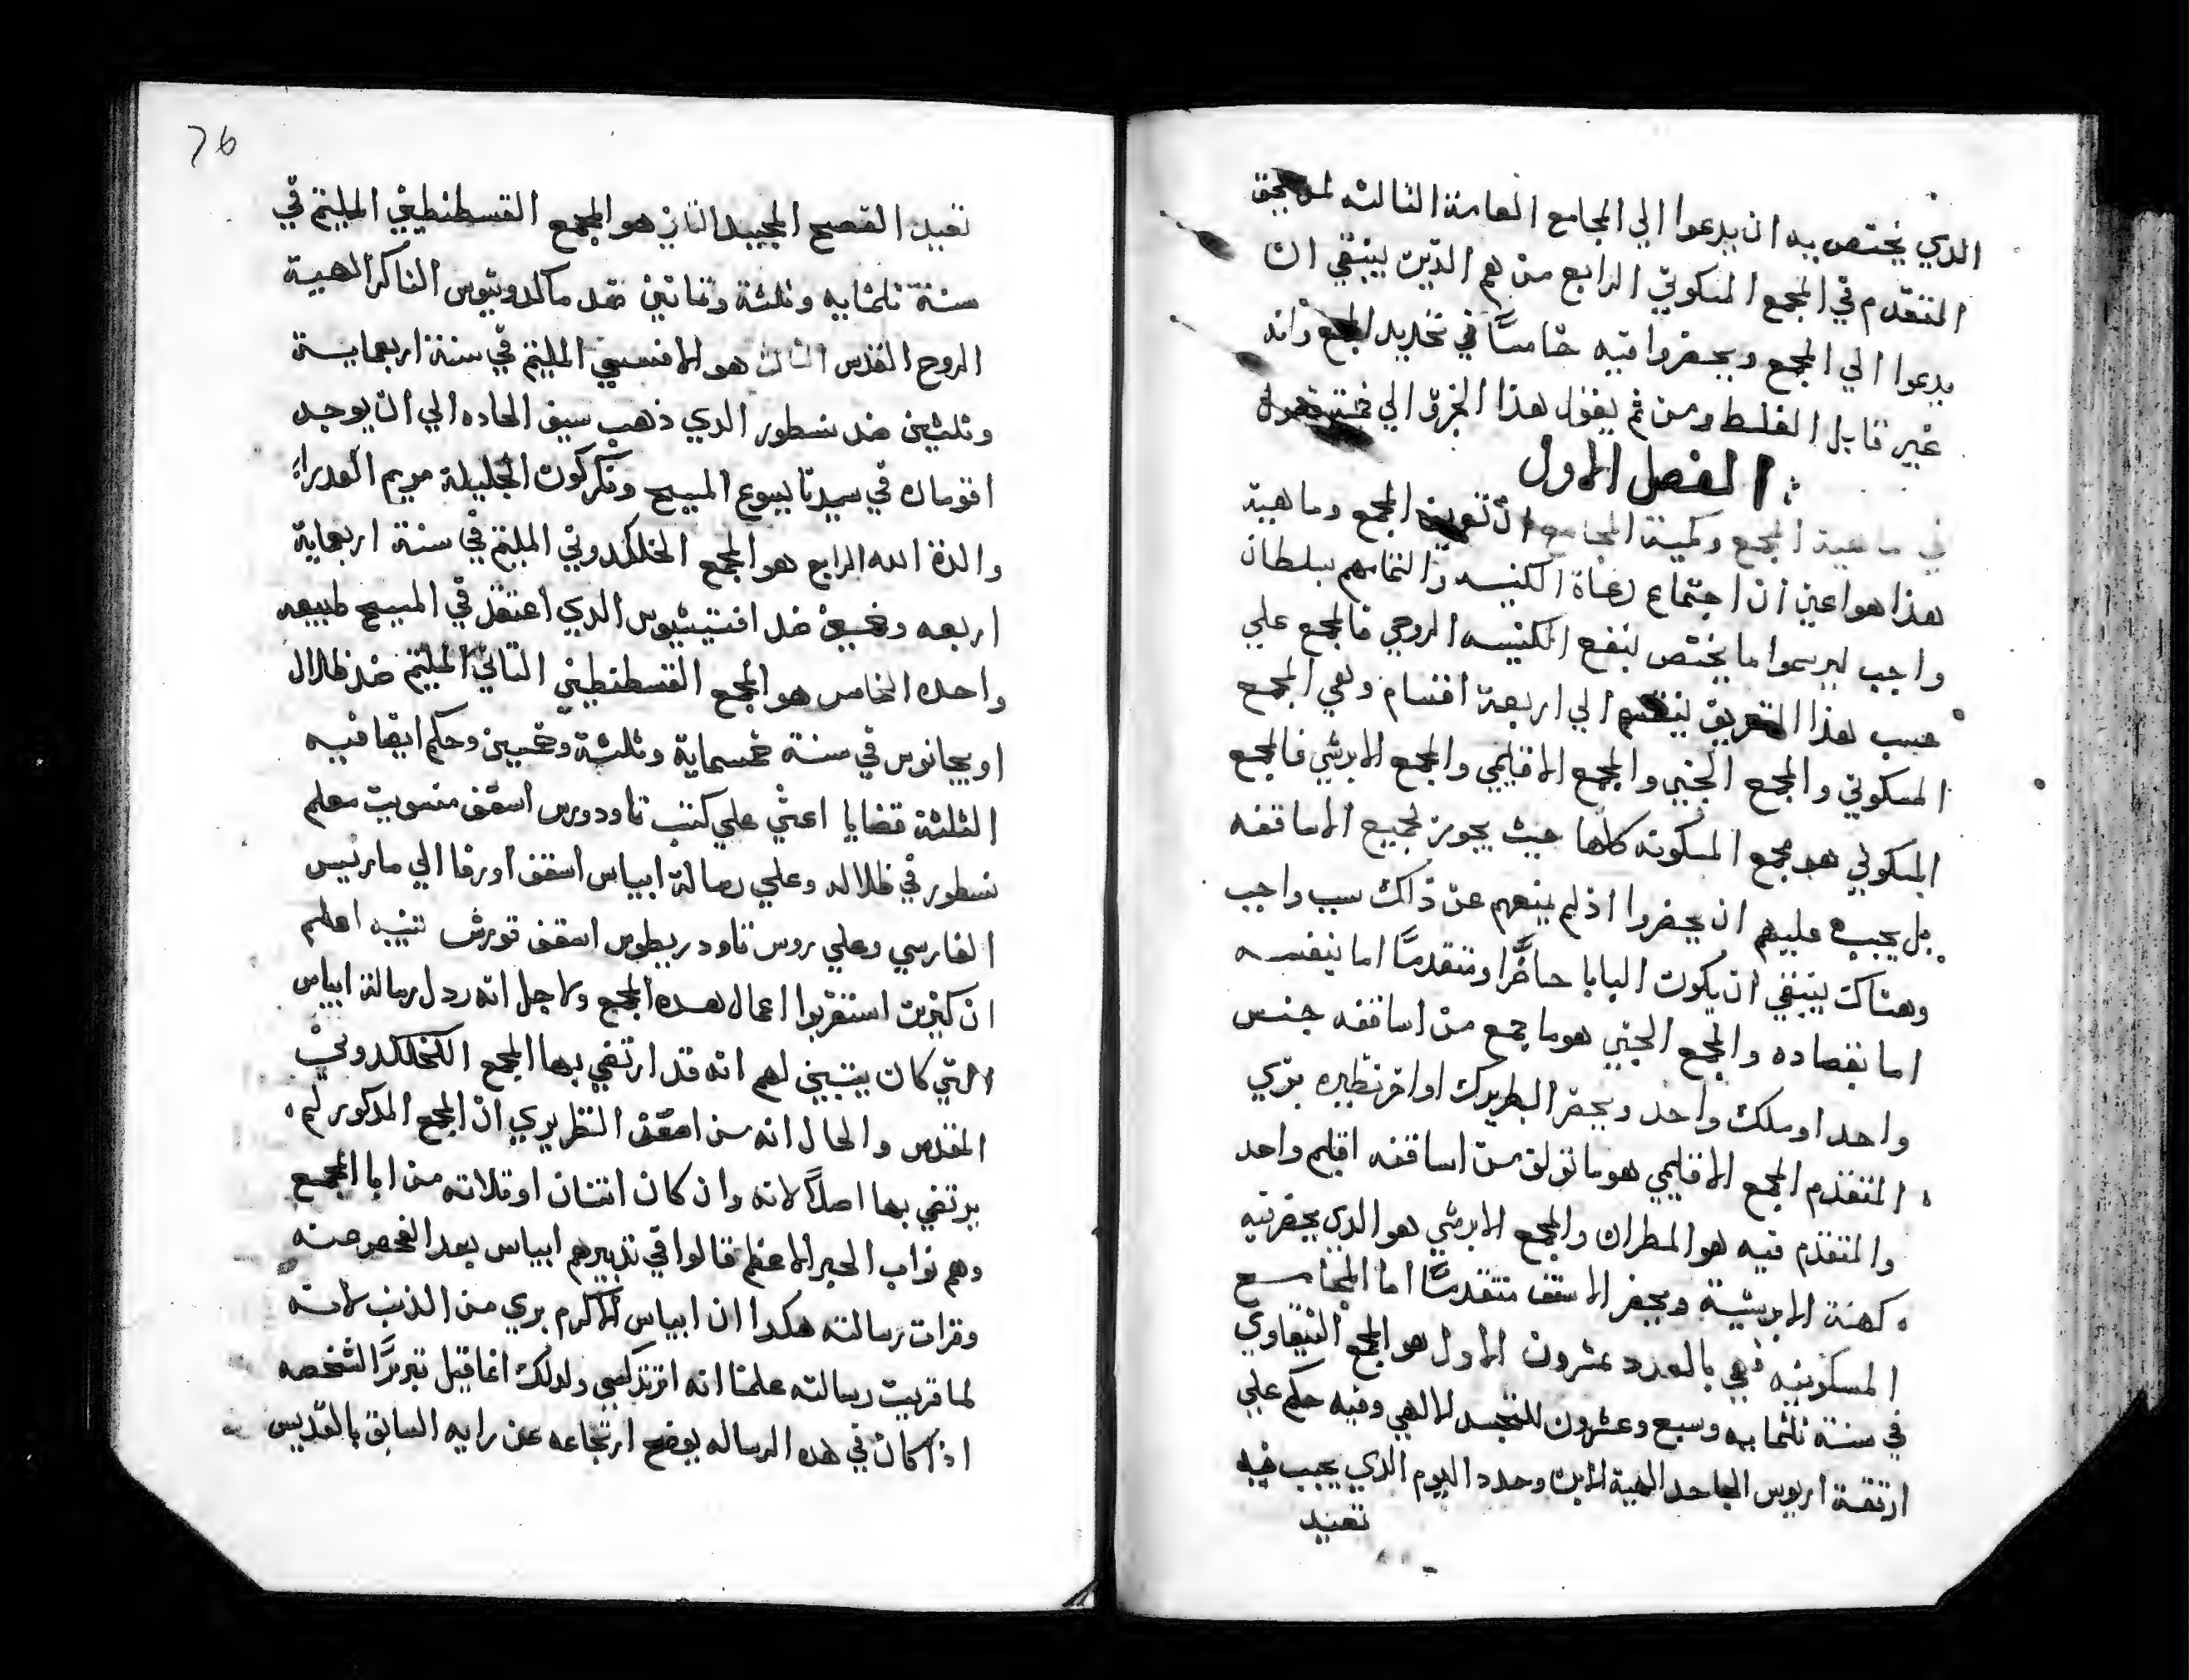 الذي يختص به ان يدعوا الي المجامع العامة الثالث لمن يحق
المتقدم في المجمع المسكوني الرابع من هم الدين ينبغي ان
يدعوا الي المجمع ويحضروا فيه خامسًا في تحديد المجمع وانه
غير قابل الغلط ومن ثم يقول هذا الجزو الي
الفصل الاول
في ماهية المجمع وكمية المجامع ان تعريف المجمع وماهية
هذا هو اعني ان اجتماع رعاة الكنيسه والتمامهم بسلطان
واجب ليرسموا ما يختص لنفع الكنيسه الروحي فالمجمع علي
حسب هذا التعريق ينقسم الي اربعة اقسام وهي المجمع
المسكوني والمجمع الجنسي والمجمع الاقليمي والمجمع الابرشي فالمجمع
المسكوني هو مجمع المسكونه كلها حيث يجوز لجميع الاساقفه
بل يجب عليهم ان يحضروا اذ لم يمنعهم عن ذاك سبب واجب
وهناك ينبغي ان يكون البابا حاضرًا ومتقدمًا اما بنفسه
اما بقصاده والمجمع الجنسي هو ما جمع من اساقفه جنس
واحد او ملك واحد ويحضر البطريرك او اخر نظيره بزي
المتقدم المجمع الاقليمي هو ما تولف من اساقفه اقليم واحد
والمتقدم فيه هو المطران والمجمع الابرشي هو الدي يحضر فيه
كهنة الابرشية ويحضر الاسقف متقدمًا اما المجامع
المسكونيه فهي بالعدد عشرون الاول هو المجمع النيقاوي
في سنة ثلثمايه وسبع وعشرون للتجسد الالهي وفيه حكم علي
ارتقة اريوس الجاحد الهية الابن وحدد اليوم الدي يجب فيه
تعيد
تعيد الفصح المجيد التاني هو المجمع القسطنطيني المليتم في
سنة ثلثمايه وثلثة وثمانين ضد ماكدونيوس الناكر الهية
الروح القدس الثالث هو الافسسي المليتم في سنة اربعماية
وثلثين ضد نسطور الدي ذهب سيف الحاده الي ان يوجد
اقومان في سيدنا يسوع المسيح وتكركون الجليلة مريم العدراء
والدة الله الرابع هو المجمع الخلكدوني المليتم في سنة اربعماية
اربعه وخمسين ضد افتيشيوس الدي اعتقد في المسيح طبيعه
واحده الخامس هو المجمع القسطنطيني التاني المليتم ضد ظلال
اوريجانوس في سنة خمسماية وثلثة وخمسين وحكم ايضا فيه
الثلثة قضايا اعني علي كتب تاودورس اسقف منسويت معلم
نسطور في ظلاله وعلي رسالة ايباس اسقف اورفا الي ماريس
الفارسي وعلي روس تاودريطوس اسقف قورش تنبيه اعلم
ان كثيرين استغربوا اعمال هده المجمع ولاجل انه ردل رسالة ايباس
التي كان يتبين لهم انه قد ارتضي بها المجمع الكخلكدوني
المقدس والحال انه من امعن النظر يري ان المجمع المدكور لم
يرتضي بها اصلًا لانه وان كان اتنان او تلاته من ابا المجمع
وهم نواب الحبر الاعظم قالوا في تدبيرهم ايباس بعد الفحص عنه
وقرات رسالته هكدا ان ايباس الاكرم بري من الذنب لانه
لما قريت رسالته علمنا انه ارتدكسي ولدلك انما قيل تبريرًا لشخصه
اذا كان في هده الرساله يوضح ارتجاعه عن رايه السابق بالقديس
76